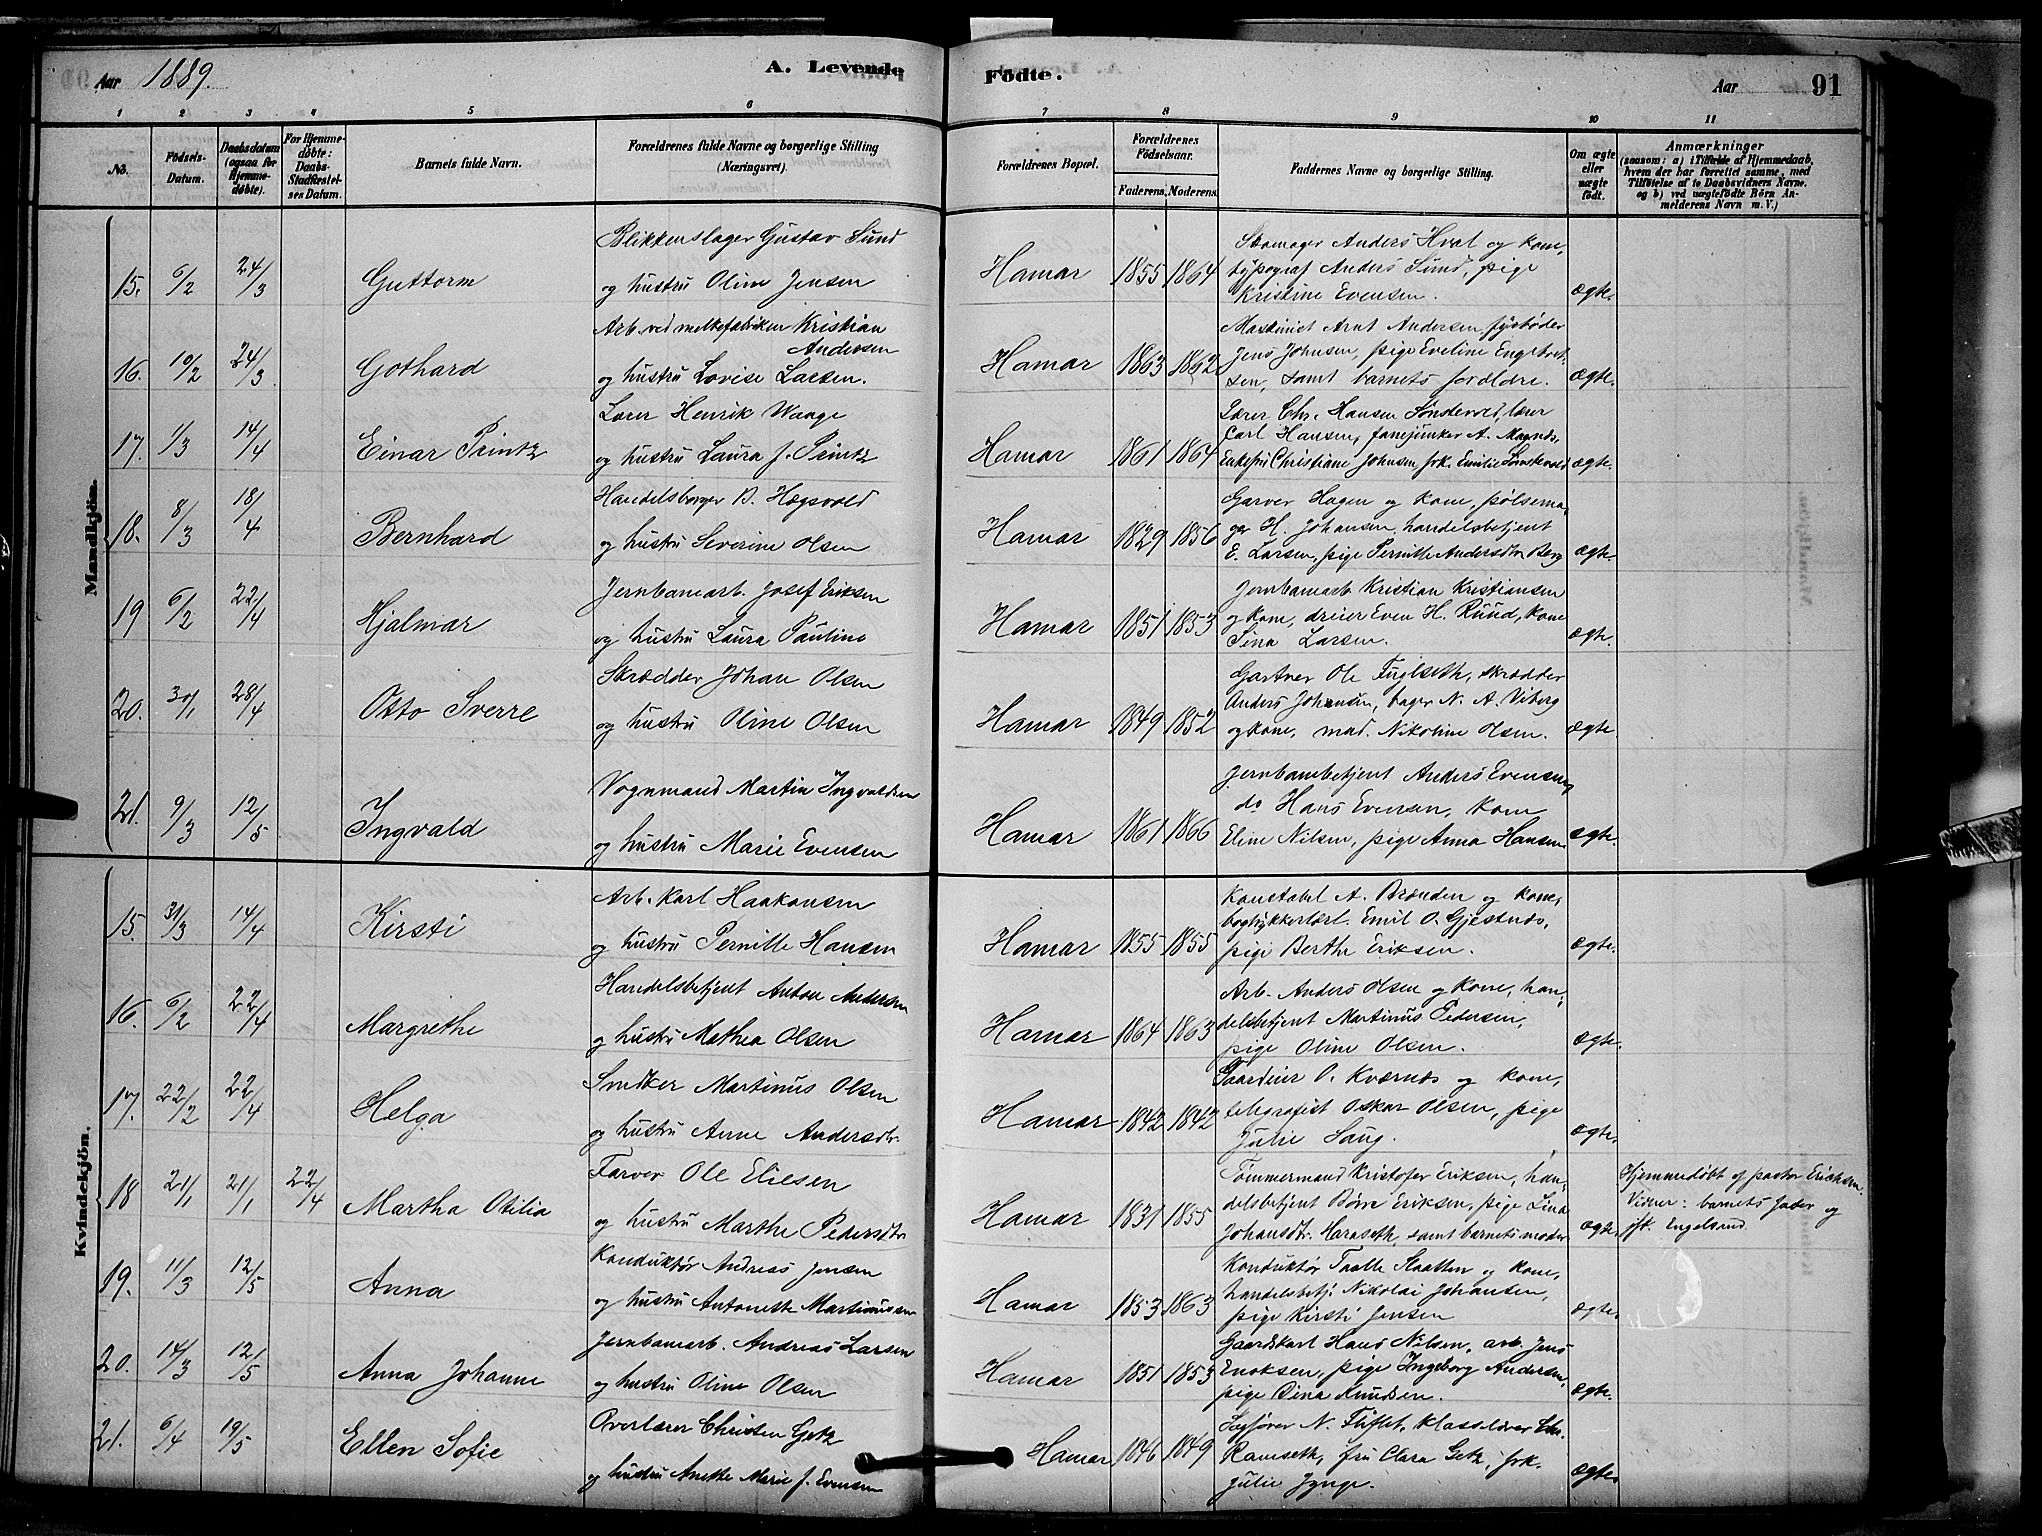 Aar 1889. A. Levende Födte. Aar 91
1 2 3 4 5 6 7 8 9 10 11
No. Födsels-Datum. Daabsdatum (ogsaa for Hjemmedöbte). For Hjemmedöbte: Daabs-Stadfæstelses Datum. Barnets fulde Navn. Forældrenes fulde Navne og borgerlige Stilling (Næringsvei). Forældrenes Bopæl. Forældrenes Födselsaar. Faderens. Moderens. Faddernes Navne og borgerlige Stilling. Om ægte eller uægte födt. Anmærkninger (saasom: a) i Tilfælde af Hjemmedaab, hvem der har forrettet samme, med Tilföielse af to Daabsvidners Navne, og b) ved uægtefödte Börn Anmelderens Navn m. V.)
Mandkjön.
Blikkenslager Gustav Sund Skomager Anders Hval og kone,
15. 6/2 24/3 Guttorm og hustru Oline Jensen Hamar 1855 1864 typograf Anders Sund, pige
Kristine Evensen. ægte.
Arb. ved melkefabriken Kristian Maskinist Arnt Andersen, fyrbøder
Andersen
16. 10/2 24/3 Gothard og hustru Lovise Larsen. Hamar 1863 1862 Jens Johnsen, pige Eveline Engebret-
sen, samt barnets forældre. ægte.
Lærer Henrik Waage Lærer Chr. Hansen lærer
17. 1/3 14/4 Einar Printz og hustru Laura J. Printz Hamar 1861 1864 Carl Hansen, fanejunker A. Magnds,
Enkefru Christiane Johnsen frk. Emilie ægte.
Handelsborger B. Hægsvold Garver Hagen og kone, pølsema-
18. 8/3 18/4 Bernhard og hustru Severine Olsen Hamar 1829 1856 ger H. Johansen, handelsbetjent
E. Larsen, pige Pernille Andersdtr Berg ægte.
Jernbanearb. Josef Eriksen Jernbanearb Kristian Kristiansen
19 6/2 22/4 Hjalmar og hustru Laura Pauline Hamar 1851 1853 og kone, dreier Even H. Ruud, kone
Sina Larsen. ægte.
Skrædder Johan Olsen Gartner Ole Fuglseth, skrædder
20. 30/1 28/4 Otto Sverre og hustru Oline Olsen Hamar 1849 1852 Anders Johansen, bager N. A. Viberg
og kone, mad. Nikoline Olsen. ægte.
Vognmand Martin Ingvaldsen Jernbanebetjent Anders Evensen,
21. 9/3 12/5 Ingvald og hustru Marie Evensen Hamar 1861 1866 do Hans Evensen, kone
Eline Nilsen, pige Anna Hansen ægte.
Kvindekjön.
Arb. Karl Haakonsen Konstabel A. Brænden og kone,
15. 31/3 14/4 Kirsti og hustru Pernille Hansen Hamar 1855 1855 bogtykkerlærl. Emil O. Gjestnæs,
pige Berthe Eriksen. ægte.
Handelsbetjent Anton Andersen Arb. Anders Olsen og kone, han-
16. 6/2 22/4 Margrethe og hustru Mathea Olsen Hamar 1864 1863 delsbetjent Martinus Pedersen,
pige Oline Olsen. ægte.
Snedker Martinus Olsen Gaardeier O. Kværnæs og kone,
17. 22/2 22/4 Helga og hustru Anne Andersdtr. Hamar 1842 1842 telegrafist Oskar Olsen, pige
Julie Saug. ægte.
Farver Ole Eliesen Tømmermand Kristofer Eriksen, han- Hjemmedøbt af pastor Erichsen.
18 21/1 21/1 22/4 Martha Otilia og hustru Marthe Pedersdtr Hamar 1831 1855 delsbetjent Børre Eriksen, pige Lina Vidner: barnets fader og
Johansdtr. Haraseth, samt barnets moder ægte. jfr. Engelsrud.
Konduktør Andreas Jensen Konduktør Taalle Slaatten og kone,
19. 11/3 12/5 Anna og hustru Antonette Martinussen Hamar 1853 1863 handelsbetj. Nikolai Johansen,
pige Kirsti Jensen ægte.
Jernbanearb. Andreas Larsen Gaardskarl Hans Nilsen, arb. Jens
20. 14/3 12/5 Anna Johanne og hustru Oline Olsen Hamar 1851 1853 Enoksen, pige Ingeborg Andersen,
pige Dina Knudsen. ægte.
Overlærer Christen Getz Sagfører N. Fliflet, klasselærer Chr.
21. 6/4 19/5 Ellen Sofie og hustru Anette Marie J. Evensen Hamar 1846 1849 Ramseth, fru Clara Getz, frk.
Julie Jynge. ægte.